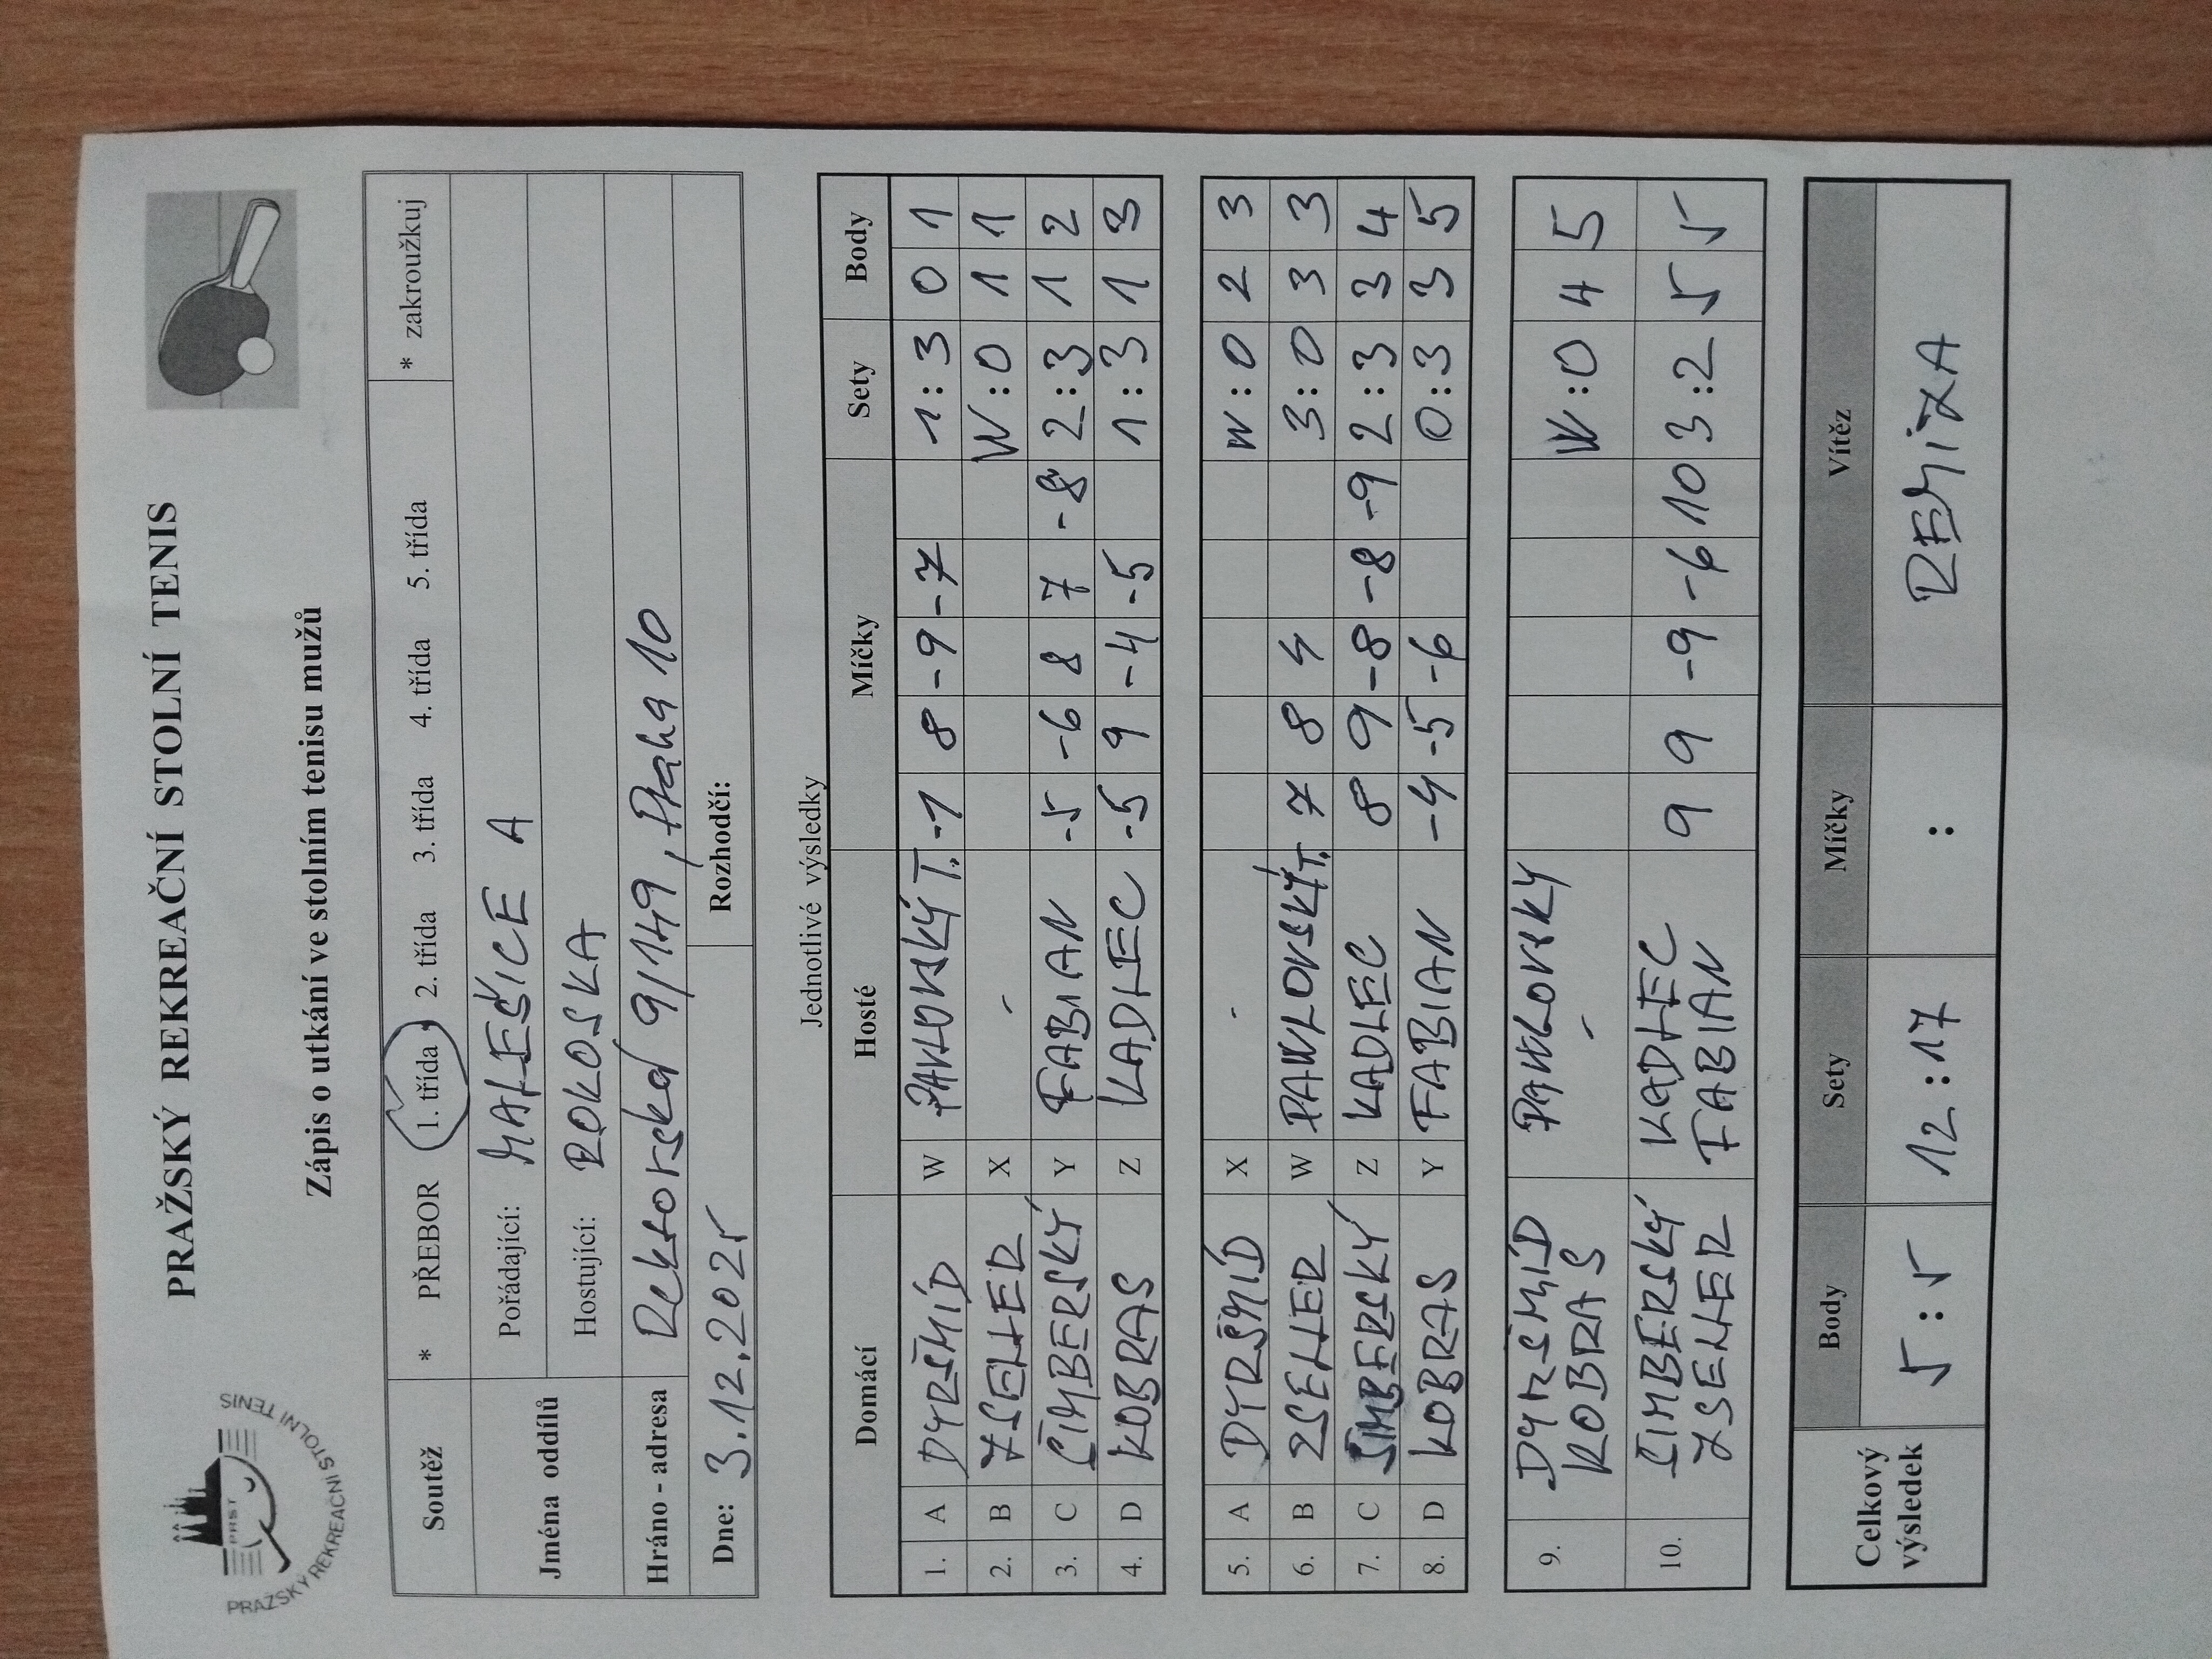 PRAŽSKÝ REKREAČNÍ STOLNÍ TENIS
PRST
PRAŽSKÝ REKREAČNÍ STOLNÍ TENIS
Zápis o utkání ve stolním tenisu mužů
Soutěž * PŘEBOR 1. třída 2. třída 3. třída 4. třída 5. třída * zakroužkuj
Jména oddílů Pořádající: MALEŠICE A
Hostující: ROKOSKA
Hráno - adresa Rektorská 9/149, Praha 10
Dne: 3.12.2025 Rozhodčí:
Jednotlivé výsledky
Domácí Hosté Míčky Sety Body
1. A DYRŠMÍD W PAVLOVSKÝ T. -7 8 -9 -7 1:3 0 1
2. B ZSELLER X - W:0 1 1
3. C CIMBERSKÝ Y FABIAN -5 -6 8 7 -8 2:3 1 2
4. D KOBRAS Z KADLEC -5 9 -4 -5 1:3 1 3
5. A DYRŠMÍD X - W:0 2 3
6. B ZSELLER W PAVLOVSKÝ T. 7 8 4 3:0 3 3
7. C CIMBERSKÝ Z KADLEC 8 9 -8 -8 -9 2:3 3 4
8. D KOBRAS Y FABIAN -4 -5 -6 0:3 3 5
9. DYRŠMÍD PAVLOVSKÝ W:0 4 5
KOBRAS -
10. CIMBERSKÝ KADLEC 9 9 -9 -6 10 3:2 5 5
ZSELLER FABIAN
Celkový výsledek Body Sety Míčky Vítěz
5:5 12:17 : REMÍZA